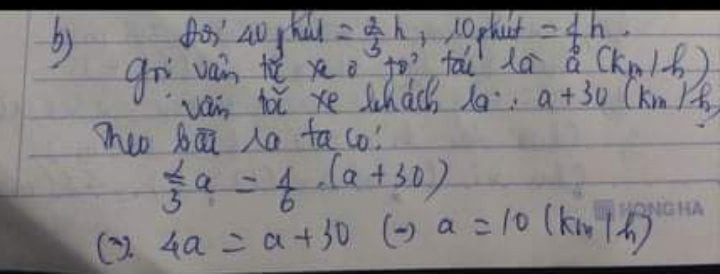 b) Đổi 40 phút = 2/3 h, 10 phút = 1/6 h.
gọi vận tốc xe ô tô tải là a (km/h)
vận tốc xe khách là: a+30 (km/h)
Theo bài ra ta có:
2/3 a = 1/6 .(a+30)
HONG HA
(=). 4a = a+30 (=) a = 10 (km/h)